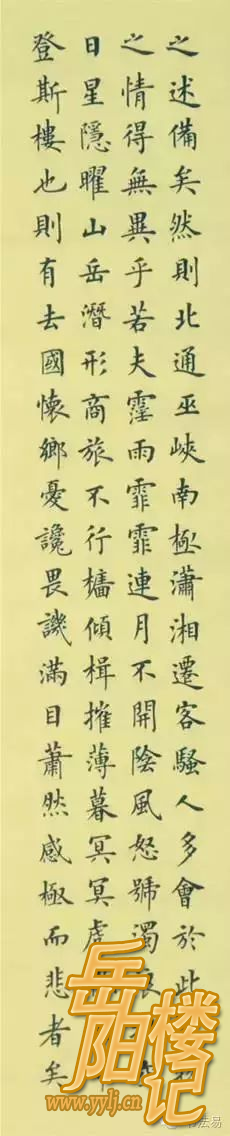 之述備矣然則北通巫峽南極瀟湘遷客騷人多會於此物
之情得無異乎若夫霪雨霏霏連月不開陰風怒號濁浪
日星隱曜山岳潛形商旅不行檣傾楫摧薄暮冥冥虎
登斯樓也則有去國懷鄉憂讒畏譏滿目蕭然感極而悲者矣
岳阳楼记
www.yylj.cn
法易